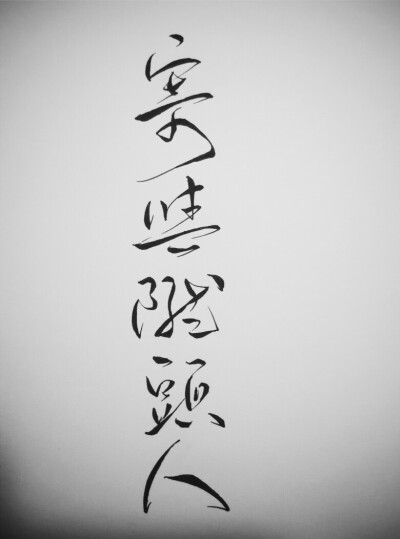 寄与陇頭人